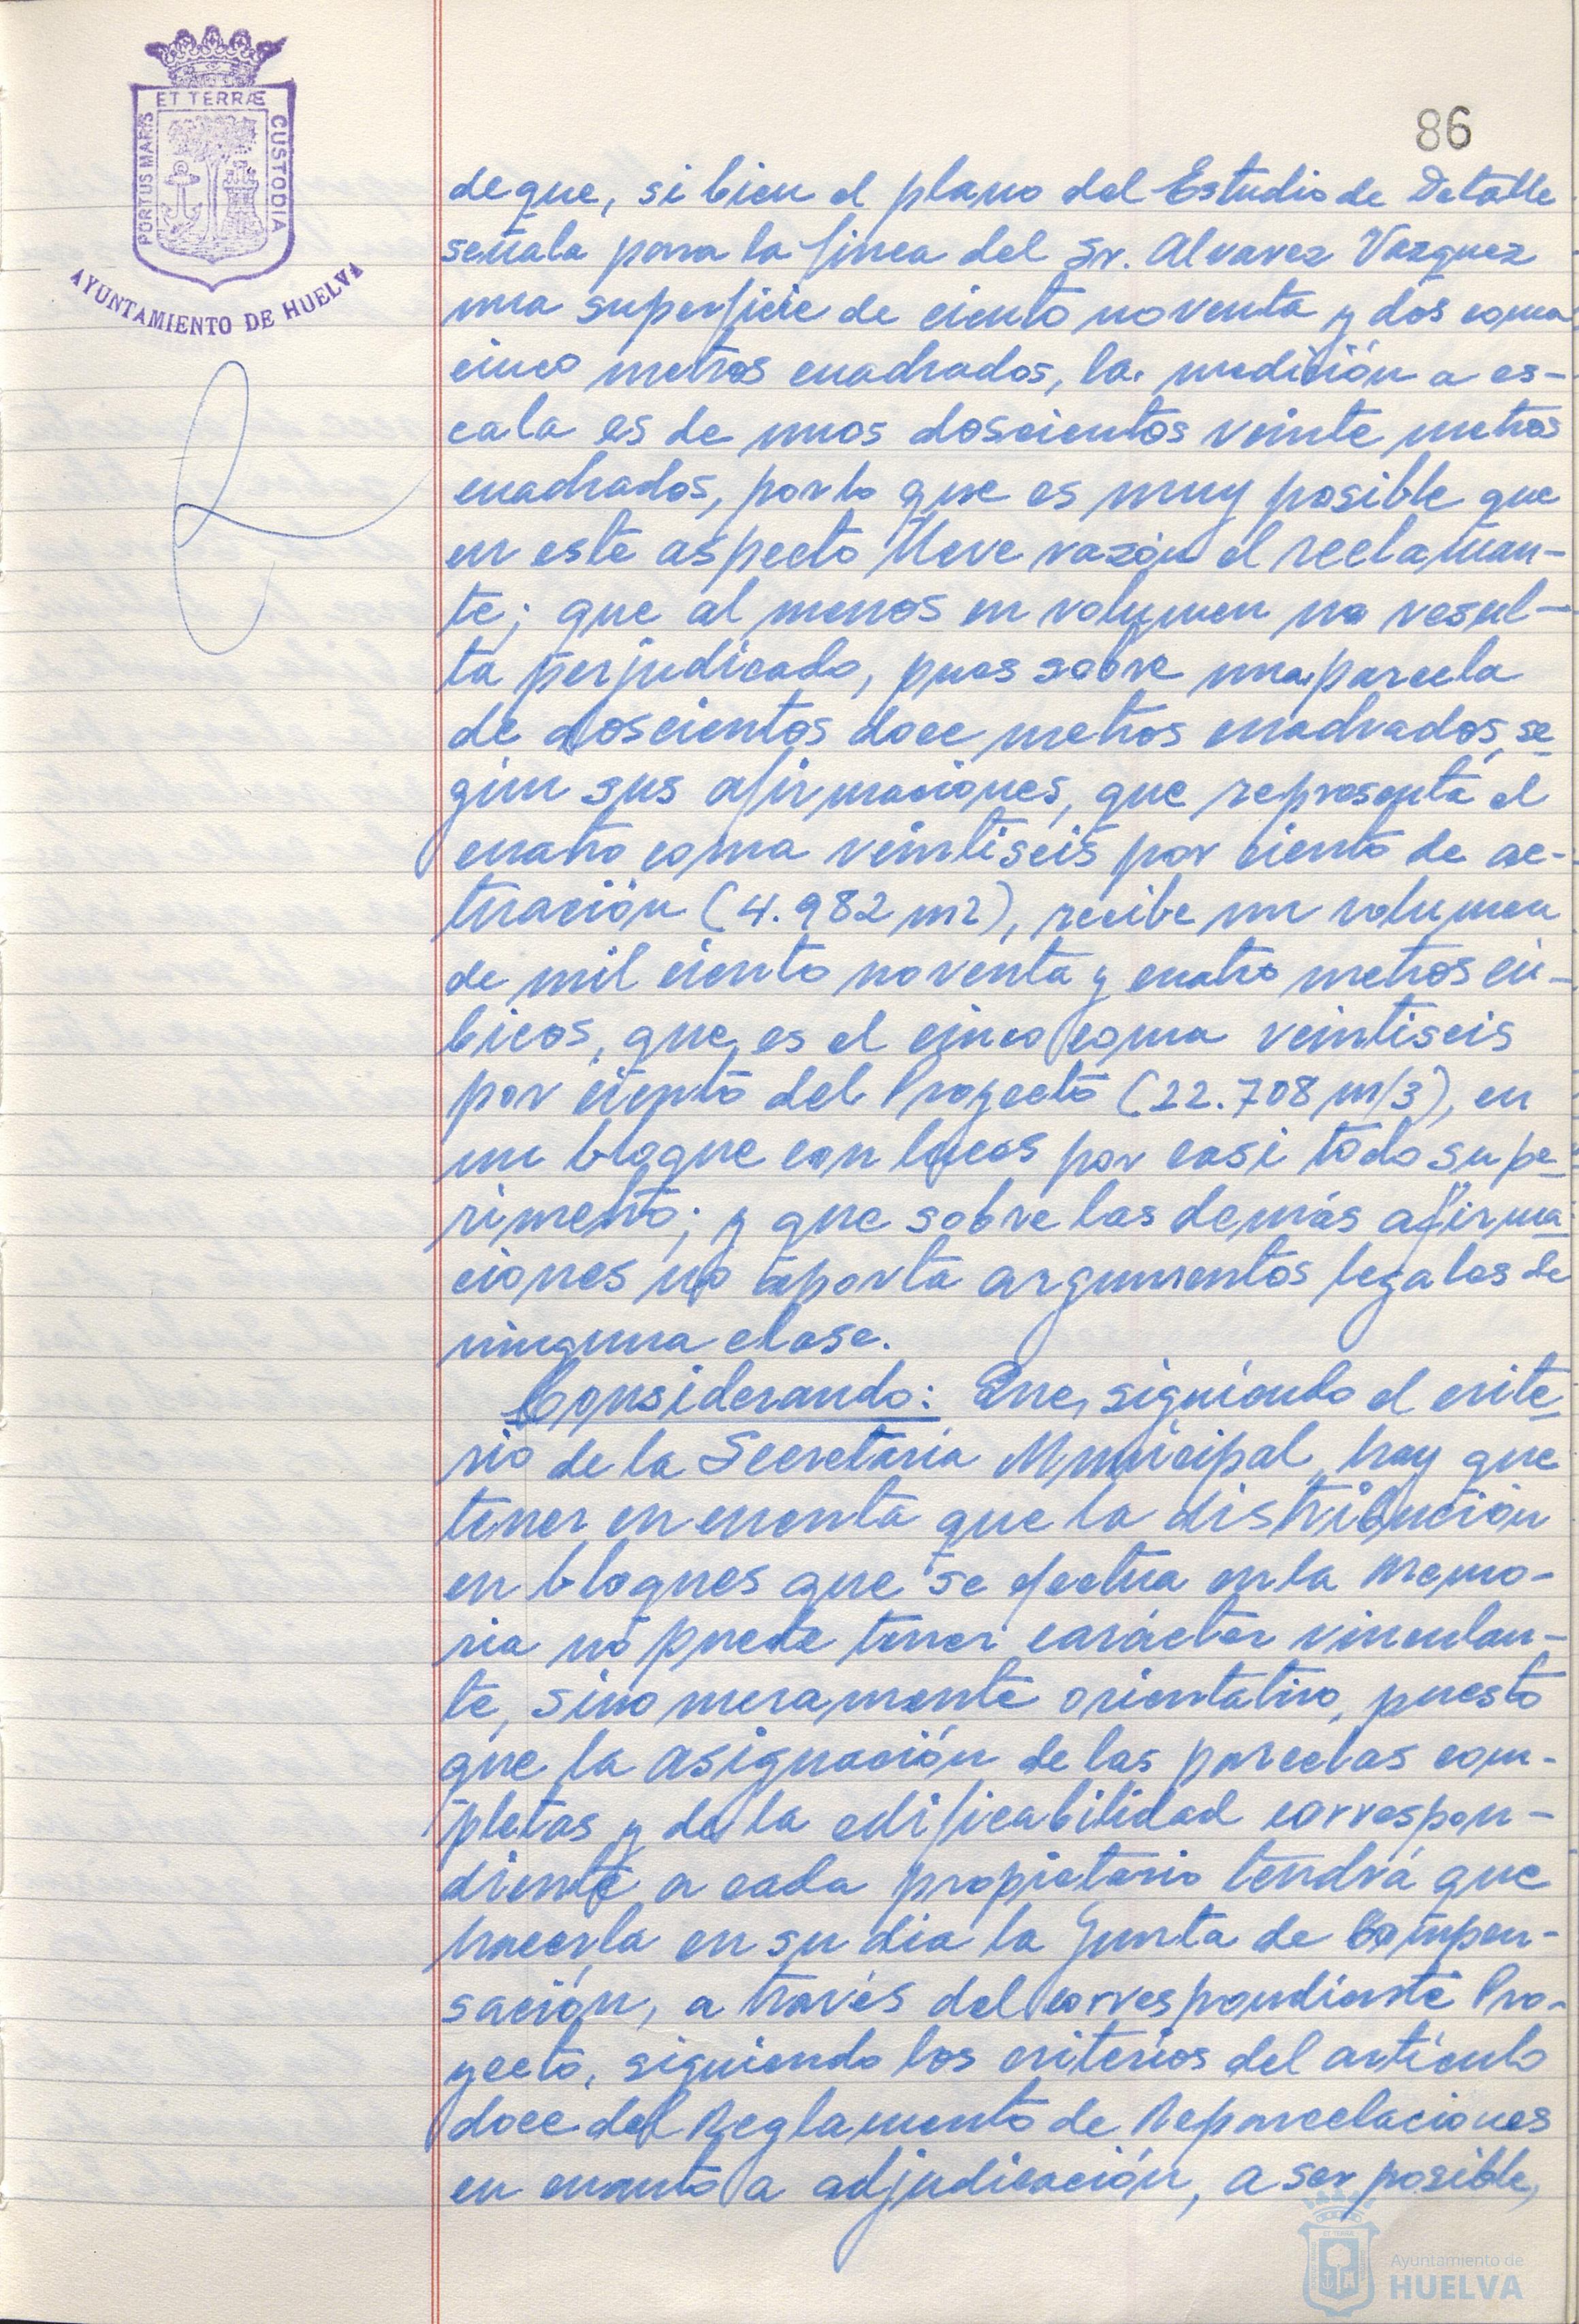 ET TERRÆ
PORTUS MARIS
CUSTODIA
AYUNTAMIENTO DE HUELVA
86
de que, si bien el plano del Estudio de Detalle
señala para la finca del Sr. Alvarez Vazquez
una superficie de ciento noventa y dos coma
cinco metros cuadrados, la medición a es-
cala es de unos doscientos veinte metros
cuadrados, por lo que es muy posible que
en este aspecto lleve razón el reclaman-
te; que al menos en volumen no resul-
ta perjudicado, pues sobre una parcela
de doscientos doce metros cuadrados, se
gún sus afirmaciones, que representa el
cuatro coma veintiseis por ciento de ac-
tuación (4.982 m2), recibe un volumen
de mil ciento noventa y cuatro metros cú-
bicos, que es el cinco coma veintiseis
por ciento del Proyecto (22.708 m/3), en
un bloque con luces por casi todo su pe
rimetro; y que sobre las demás afirma
ciones no aporta argumentos legales de
ninguna clase.
Considerando: Que, siguiendo el crite
rio de la Secretaría Municipal, hay que
tener en cuenta que la distribución
en bloques que se efectua en la Memo-
ria no puede tener carácter vinculan-
te, sino meramente orientativo, puesto
que la asignación de las parcelas com-
pletas y de la edificabilidad correspon-
diente a cada propietario tendrá que
hacerla en su dia la Junta de Compen-
sación, a través del correspondiente Pro-
yecto, siguiendo los criterios del artículo
doce del Reglamento de Reparcelaciones
en cuanto a adjudicación, a ser posible,
Ayuntamiento de
HUELVA